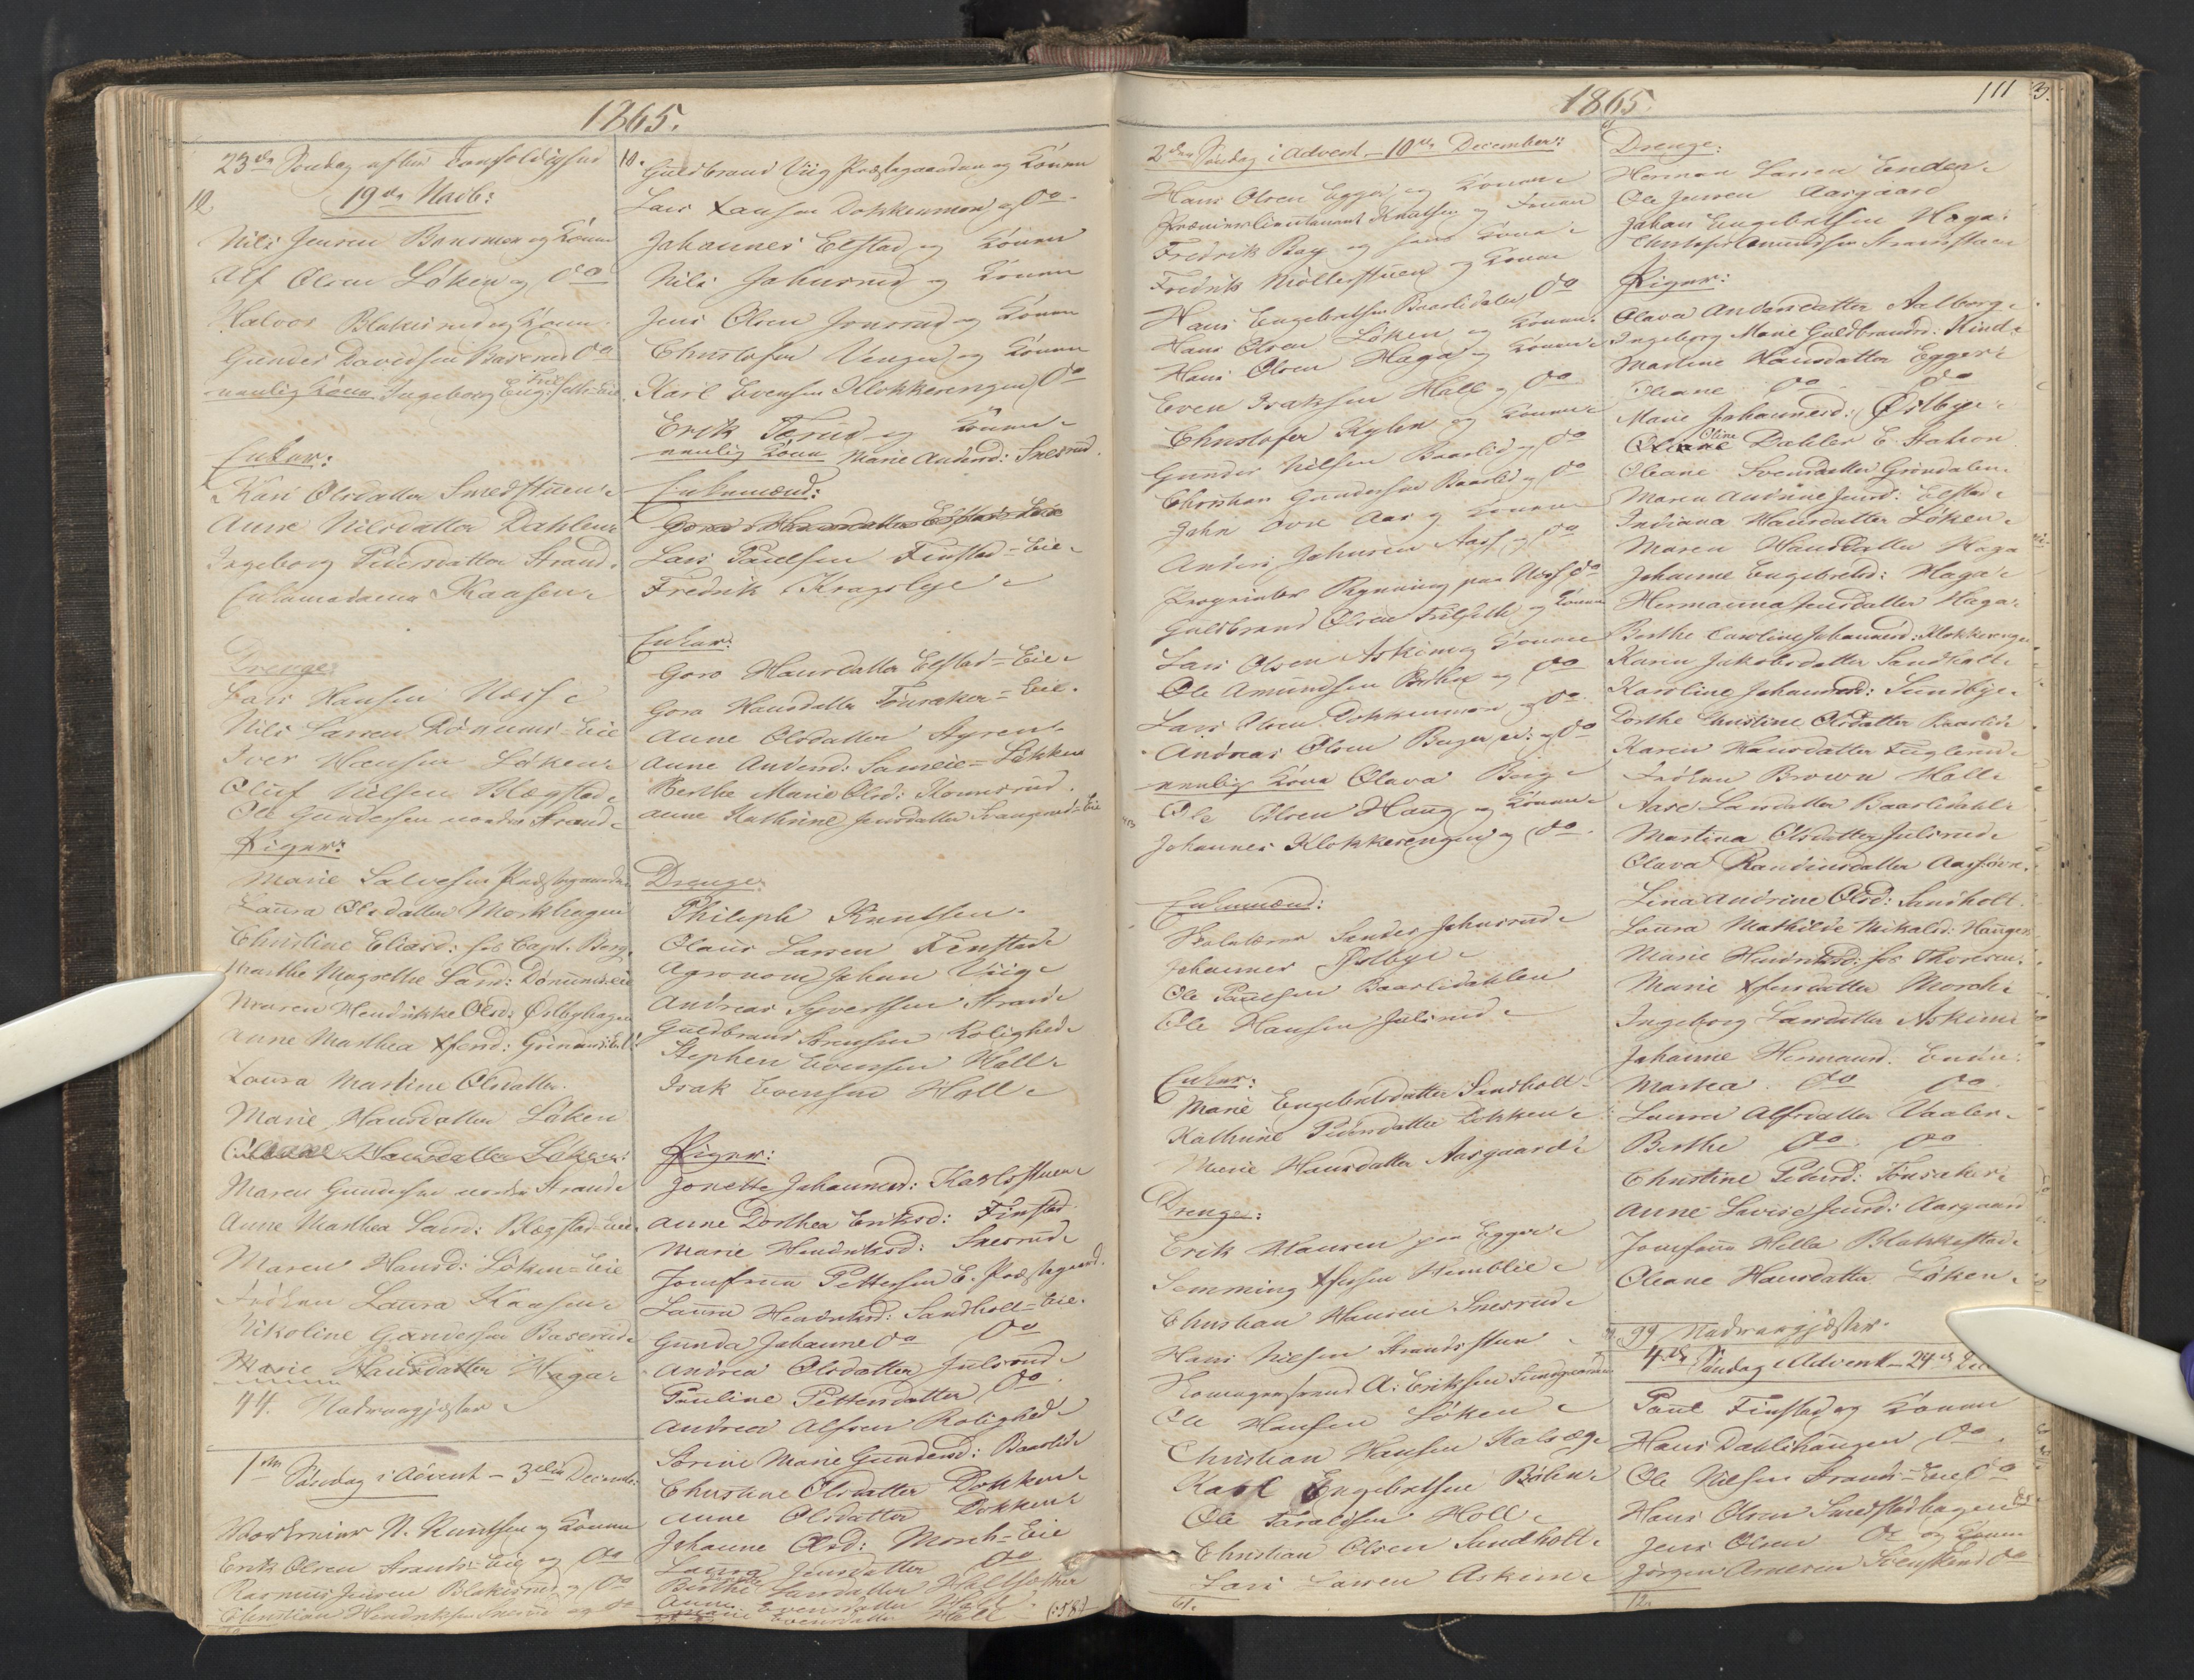 1865.
23de Søndag efter Trefoldighed
19de Novb:
12
Nils Jensen Bonsmoen og Konen
Alf Olsen Løken og do
Halvor Blakisrud og Konen
Gunder Davidsen Baserud do
nemlig Kone Ingeborg
Enker:
Kari Olsdatter Smedstuen
Anne Nilsdatter Dahlen
Ingeborg Pedersdatter Strand
Enkemadame Kaasen
Drenge
Lars Hansen Næss
Nils Larsen Dønnums-Eie
Iver Hansen Løken
Oluf Nilsen Blegstad
Ole Gundersen nordre Strand
Piger:
Marie Salvesen Præstegaarden
Laura Olsdatter Morkhagen
Christine Eliasd: hos Capt. Berg
Marthe Magrethe Larsd: Dønnumseie
Maren Hendrikke Olsd: Østbyhagen
Anne Marthea Xfersd:
Laura Martine Olsdatter
Marie Hansdatter Løken
Oleane Hansdatter Løken
Maren Gundersen nordre Strand
Anne Marthea Larsd: Blegstad-Eie
Maren Hansd: Løken-Eie
Frøken Laura Kaasen
Nikoline Gundersen Baserud
Marie Hansdatter Haga
44. Nadvergjæster
1ste Søndag i Advent - 3die December
N. Knutsen og Konen
Erik Olsen Strands-Eie og do
Rasmus Jensen Blakisrud og do
Christian Hendriksen Snesrud og do
10.
Guldbrand Viig Præstegaarden og Konen
Lars Larsen Dokkenmoen og do
Johannes Elstad og Konen
Nils Johnsrud og Konen
Jens Olsen Jonsrud og Konen
Christofer Venger og Konen
Karl Evensen Klokkerengen do
Erik Terud og Konen
nemlig Kone Marie Andersd: Snesrud.
Enkemænd:
Goro Hansdatter Elstad-Eie
Lars Paulsen Finstad-Eie
Fredrik Kragsleje
Enker:
Goro Hansdatter Elstad-Eie
Gora Hansdatter Tønsaker-Eie.
Anne Olsdatter Styren
Anne Andersd: Sameie-Løkken
Berthe Marie Olsd: Konnerud
Anne Kathrine Jensdatter
Drenge
Philiph Knutsen
Olaus Larsen Finstad
Agronom Johan Viig
Andreas Syvertsen Strand
Guldbrand Sørensen Rolighed
Stephen Evensen Hall
Isak Evensen Hall
Piger:
Jonette Johannesd: Karlsstuen
Anne Dorthea Eriksd: Finstad
Marie Hendriksd: Snesrud
Jomfrue Pettersen E. Præstegaard.
Laura Hendriksd: Sandholt-Eie.
Gunda Johanne do do
Andrea Olsdatter Julsrud
Pauline Pettersdatter do
Andrea Alfsen Rolighed
Sørine Marie Gundersd: Baarlid
Christine Olsdatter Dokken
Anne Olsdatter Dokken
Johanne Olsd: Morch-Eie
Laura Jensdatter do
Berthe Larsdatter
Anne Evensdatter Hall
Evensdatter Hall
(:58:)
1865.
111
2den Søndag i Advent - 10de December:
Hans Olsen Egger og Konen
Premierlieutenant Knutsen og Fruen
Fredrik Bay og hans Kone
Fredrik Møllerstuen og Konen
Hans Engebretsen Baarlidalen do
Hans Olsen Løken og Konen
Hans Olsen Haga og Konen
Even Isaksen Hall og do
Christofer Rylen og Konen
Gunder Nilsen Baarlid og do
Christian Gundersen Baarlid og do
John Aas og Konen
Anders Johnsen Aas og do
Proprietær Rynning paa Næss do
Guldbrand Olsen og Konen
Lars Olsen Askim og Konen
Ole Amundsen og do
Lars Olsen Dokkenmoen og do
Andreas Olsen Berger og do
nemlig Kone Olava Berg
Ole Olsen Haug og Konen
Johannes Klokkerengen og do.
Enkemænd:
Skolelærer Sander Johnsrud
Johannes Østbye
Ole Paulsen Baarlidahlen
Ole Hansen Julsrud
Enker:
Marie Engebretsdatter Sandholt
Kathrine Pedersdatter Løkken
Marie Hansdatter Aasgaard
Drenge:
Erik Hansen paa Egger
Semming Xfersen Humblie
Christian Hansen Snesrud
Hans Nilsen Strandsstuen
A: Eriksen
Ole Hansen Løken
Christian Hansen Kalsæg
Karl Engebretsen Bølen
Ole Taraldsen Holl
Christian Olsen Sandholt
Lars Larsen Askim
61.
Drenge:
Herman Larsen Enden
Ole Jensen Aasgaard
Johan Engebretsen Haga
Christofer Amundsen Strandstuen
Piger:
Olava Andersdatter Aalborg
Ingeborg Marie Guldbrandsd: Rind
Martine Hansdatter Egger
Oleane do do
Marie Johannesd: Østbye
Oline Dahler E. Station
Oleane Svensdatter Grøndalen
Maren Andrine Jensd: Elstad
Indiana Hansdatter Løken
Maren Hansdatter Haga
Johanne Engebretsd: Haga
Hermanna Jensdatter Haga
Berthe Caroline Johannesd: Klokkerengen
Karen Jakobsdatter Sandholt
Karoline Johannesd: Sundbye
Dorthe Christine Olsdatter Baarlid
Karen Hansdatter Fuglerud
Frøken Brown Hall
Aase Larsdatter Baarlidahl
Martina Olsdatter Julsrud
Olava Randinsdatter
Lina Andrine Olsd: Sandholt.
Laura Mathilde Mikalsd: Haugen
Marie Hendriksd: hos Thoresen
Marie Xfersdatter Morch
Ingeborg Larsdatter Askim
Johanne Hermansd. Enden
Marthea do do
Laura Alfsdatter Vaaler
Berthe do do
Christine Pedersd: Tønsaker
Anne Lovise Jensd: Aasgaard
Jomfrue Hella Blakkestad
Oleane Hansdatter Løken
99 Nadvergjæster.
4de Søndag i Advent - 24de
Paul Finstad og Konen
Hans Dahlihaugen do
Ole Nilsen Strands-Eie do
Hans Olsen Smedstadhagen do
Jens Olsen do og Konen
Jørgen Arnesen Svenskerud do
12.